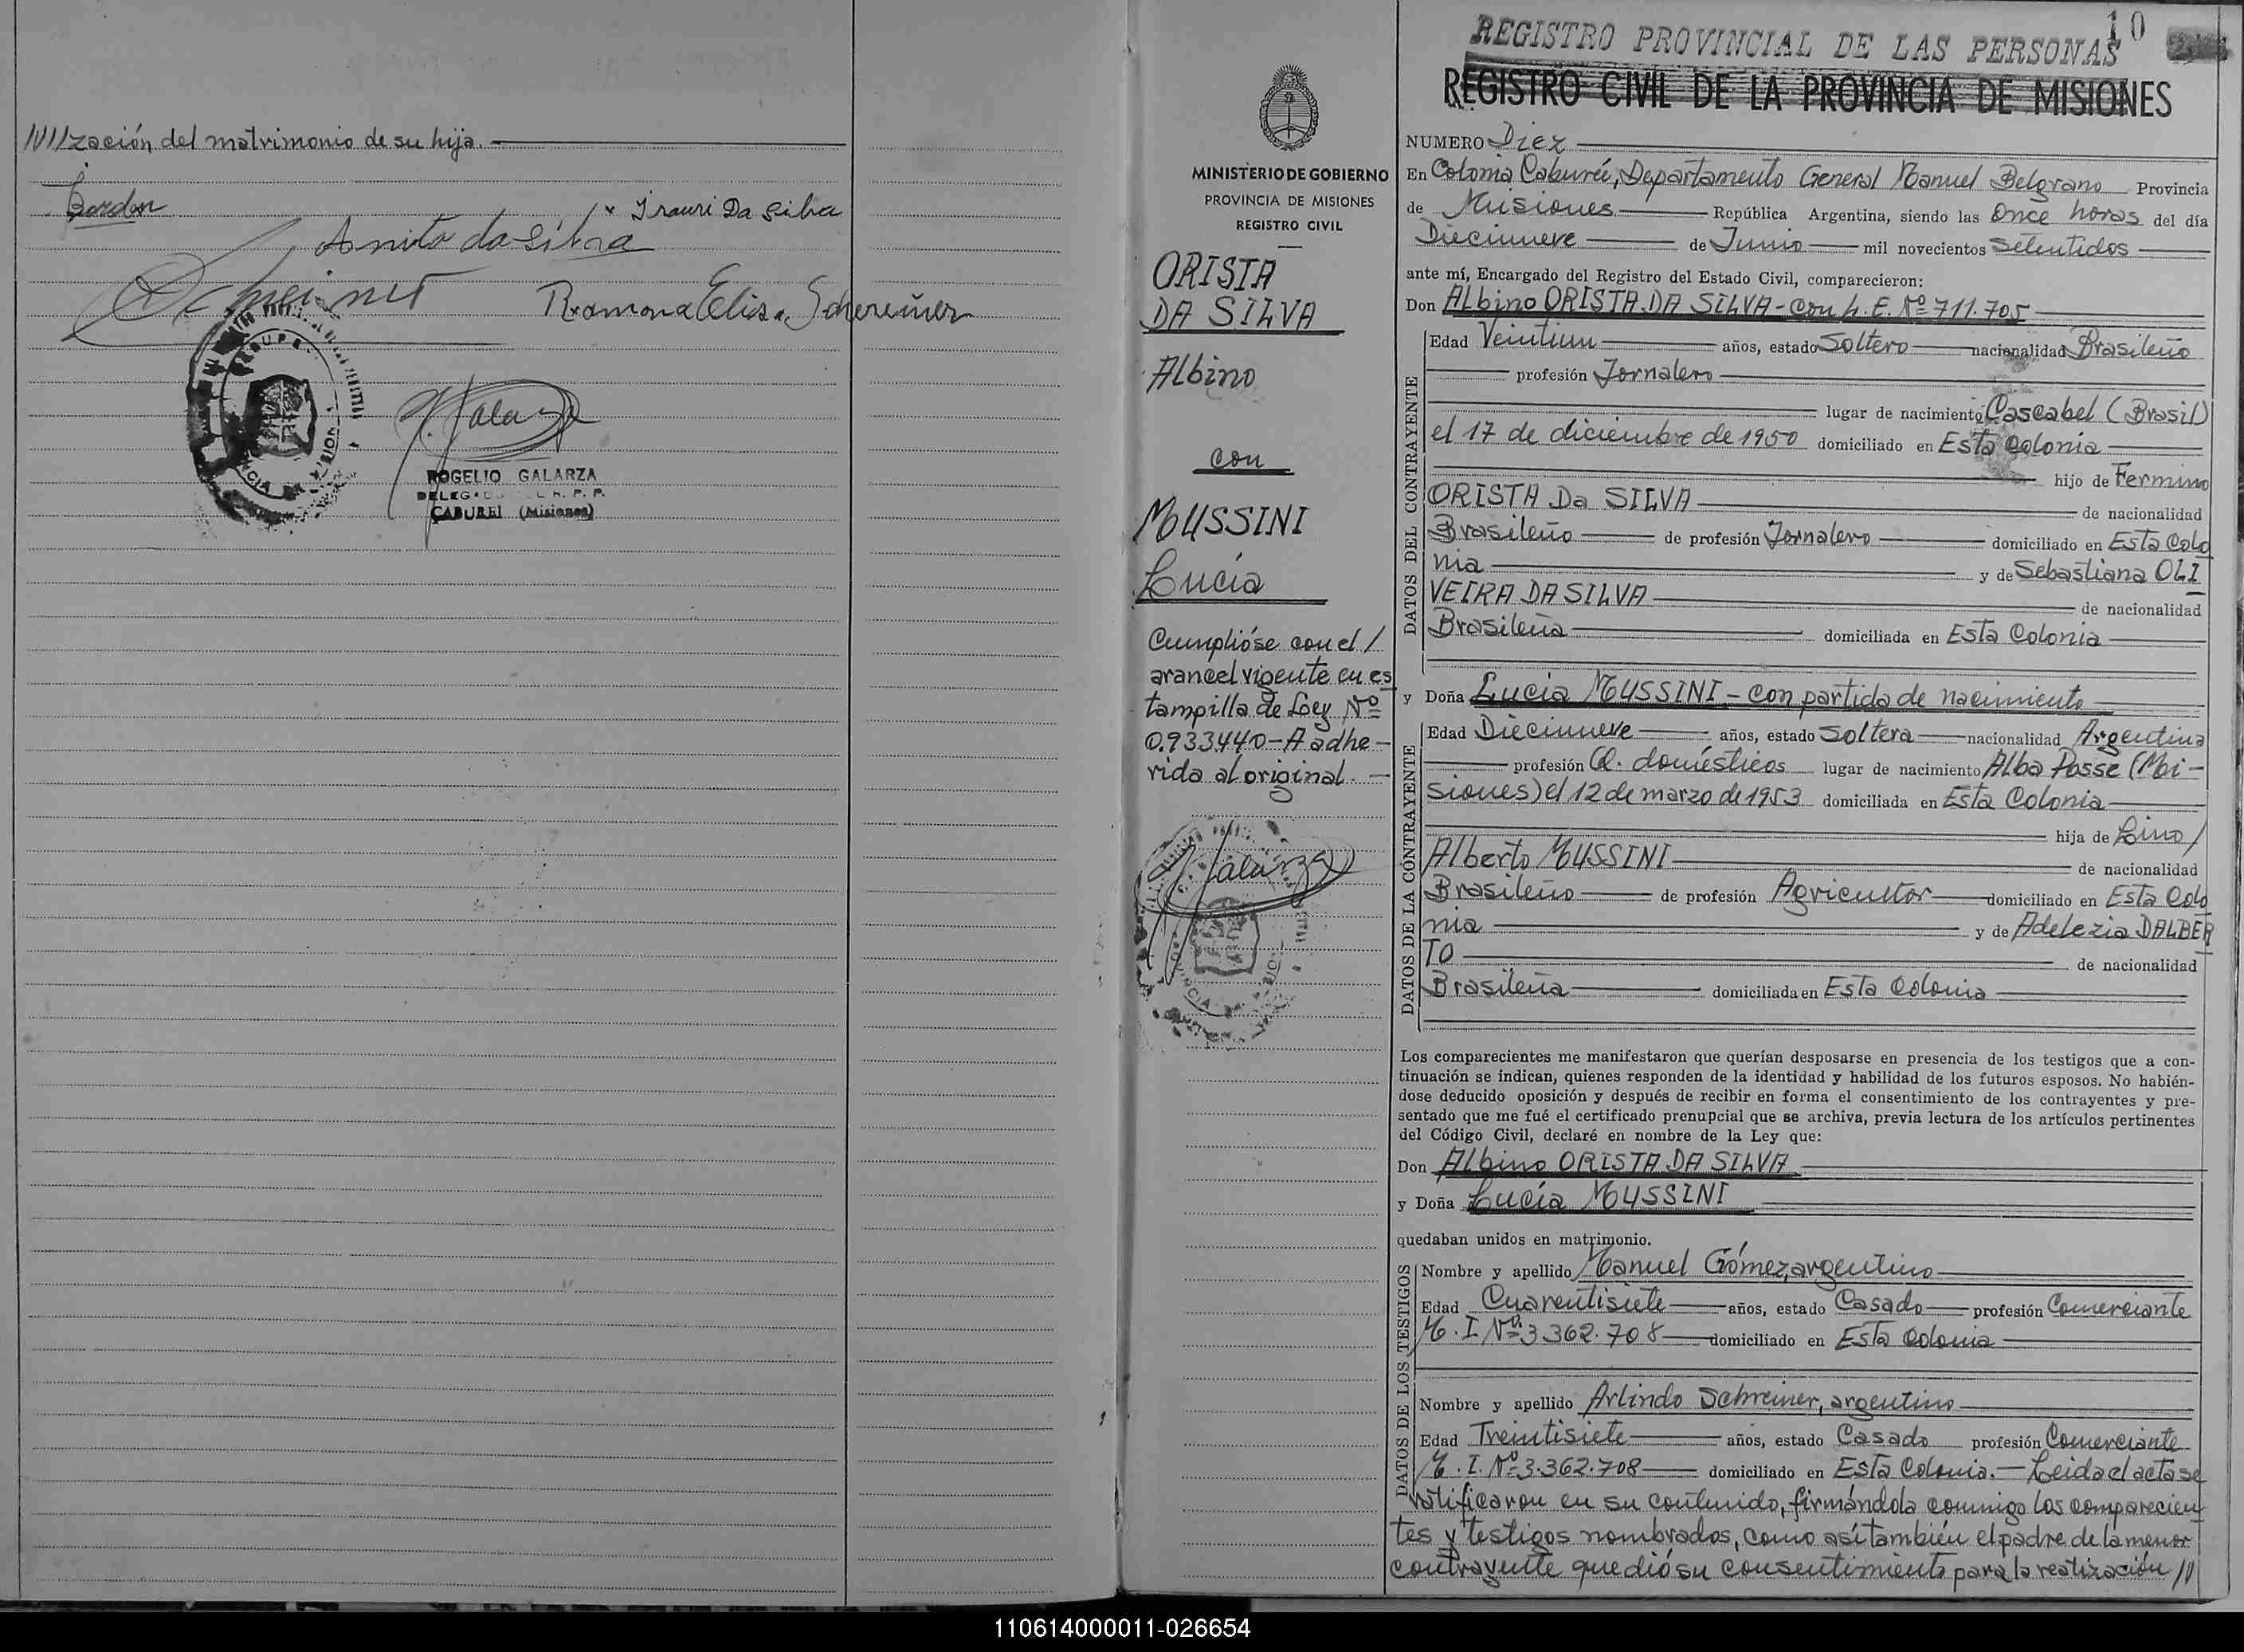 ///zación del matrimonio de su hija.
Bordon
Irauri Da Silva
Anita da Silva
Ramona Elisa Schereiner
ROGELIO GALARZA
CABUREI (Misiones)
MINISTERIO DE GOBIERNO
PROVINCIA DE MISIONES
REGISTRO CIVIL
ORISTA
DA SILVA
Albino
con
MUSSINI
Lucía
Cumplióse con el /
arancel vigente en es
tampilla de Ley Nº
0.933.440-A adhe-
rida al original. -
10
REGISTRO PROVINCIAL DE LAS PERSONAS
REGISTRO CIVIL DE LA PROVINCIA DE MISIONES
NUMERO Diez
En Colonia Caburéi, Departamento General Manuel Belgrano Provincia
de Misiones República Argentina, siendo las Once horas del día
Diecinueve de Junio mil novecientos Setentidos
ante mí, Encargado del Registro del Estado Civil, comparecieron:
Don Albino ORISTA DA SILVA - con L.E. Nº 711.705
DATOS DEL CONTRAYENTE
Edad Veintiun años, estado Soltero nacionalidad Brasileño
profesión Jornalero
lugar de nacimiento Cascabel (Brasil)
el 17 de diciembre de 1950 domiciliado en Esta Colonia
hijo de Fermino
ORISTA Da SILVA de nacionalidad
Brasileño de profesión Jornalero domiciliado en Esta Colo
nia y de Sebastiana OLI
VEIRA DA SILVA de nacionalidad
Brasileña domiciliada en Esta Colonia
y Doña Lucía MUSSINI - con partida de nacimiento
DATOS DE LA CONTRAYENTE
Edad Diecinueve años, estado Soltera nacionalidad Argentina
profesión Q. domésticos lugar de nacimiento Alba Posse (Mi-
siones) el 12 de marzo de 1953 domiciliada en Esta Colonia
hija de Lino /
Alberto MUSSINI de nacionalidad
Brasileño de profesión Agricultor domiciliado en Esta Colo
nia y de Adelezia DALBER
TO de nacionalidad
Brasileña domiciliada en Esta Colonia
Los comparecientes me manifestaron que querían desposarse en presencia de los testigos que a con-
tinuación se indican, quienes responden de la identidad y habilidad de los futuros esposos. No habién-
dose deducido oposición y después de recibir en forma el consentimiento de los contrayentes y pre-
sentado que me fué el certificado prenupcial que se archiva, previa lectura de los artículos pertinentes
del Código Civil, declaré en nombre de la Ley que:
Don Albino ORISTA DA SILVA
y Doña Lucía MUSSINI
quedaban unidos en matrimonio.
DATOS DE LOS TESTIGOS
Nombre y apellido Manuel Gómez, argentino
Edad Cuarentisiete años, estado Casado profesión Comerciante
M.I. Nº 3.362.708 domiciliado en Esta Colonia
Nombre y apellido Arlindo Schreiner, argentino
Edad Treintisiete años, estado Casado profesión Comerciante
M.I. Nº 3.362.708 domiciliado en Esta Colonia. - Leida el acta se
ratificaron en su contenido, firmándola conmigo los comparecien
tes y testigos nombrados, como así también el padre de la menor
contrayente que dió su consentimiento para la realización //
110614000011-026654